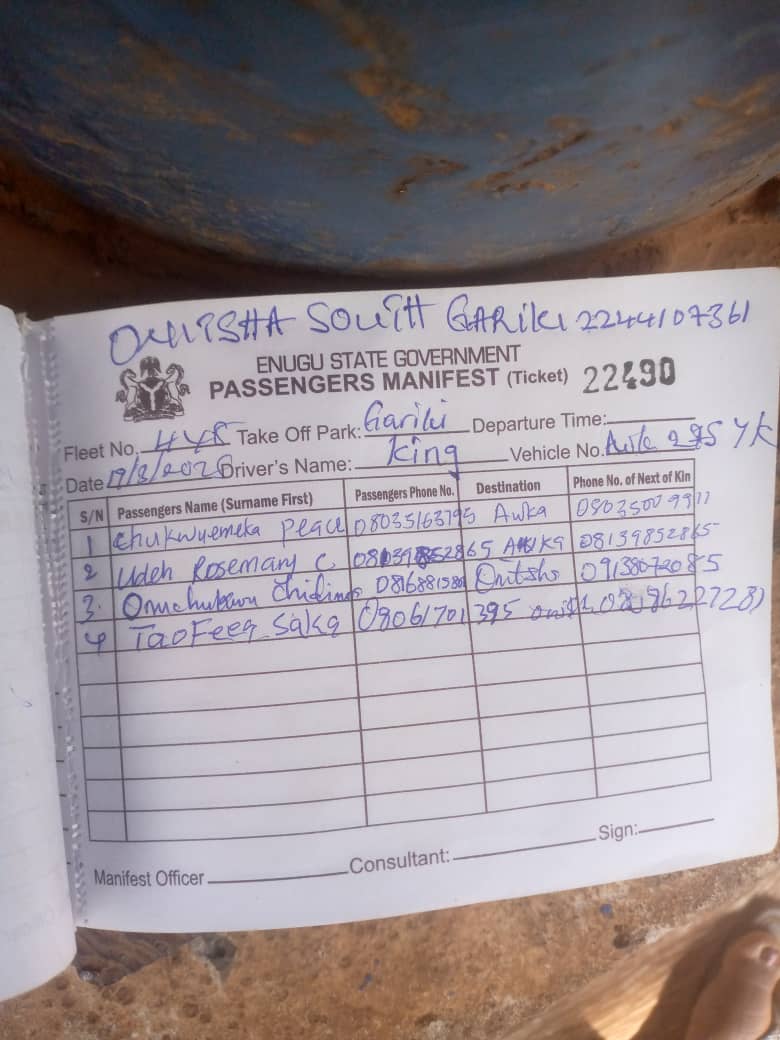 ONITSHA SOUTH GARIKI 2244107361
ENUGU STATE GOVERNMENT
PASSENGERS MANIFEST (Ticket) 22490
Fleet No. 448 Take Off Park: Gariki Departure Time:
Date 19/3/2026 Driver's Name: King Vehicle No. 295 YK
S/N Passengers Name (Surname First) Passengers Phone No. Destination Phone No. of Next of Kin
1 Chukwuemeka Peace 08035163795 Awka
2 Udeh Rosemary C. Awka 08139852865
3. 09138072085
4 TaoFeeq Saka 08061701395
Manifest Officer Consultant: Sign: